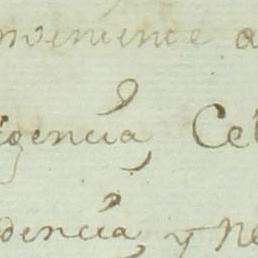 nveniente a
igencia, Cel
dencia, y Ne